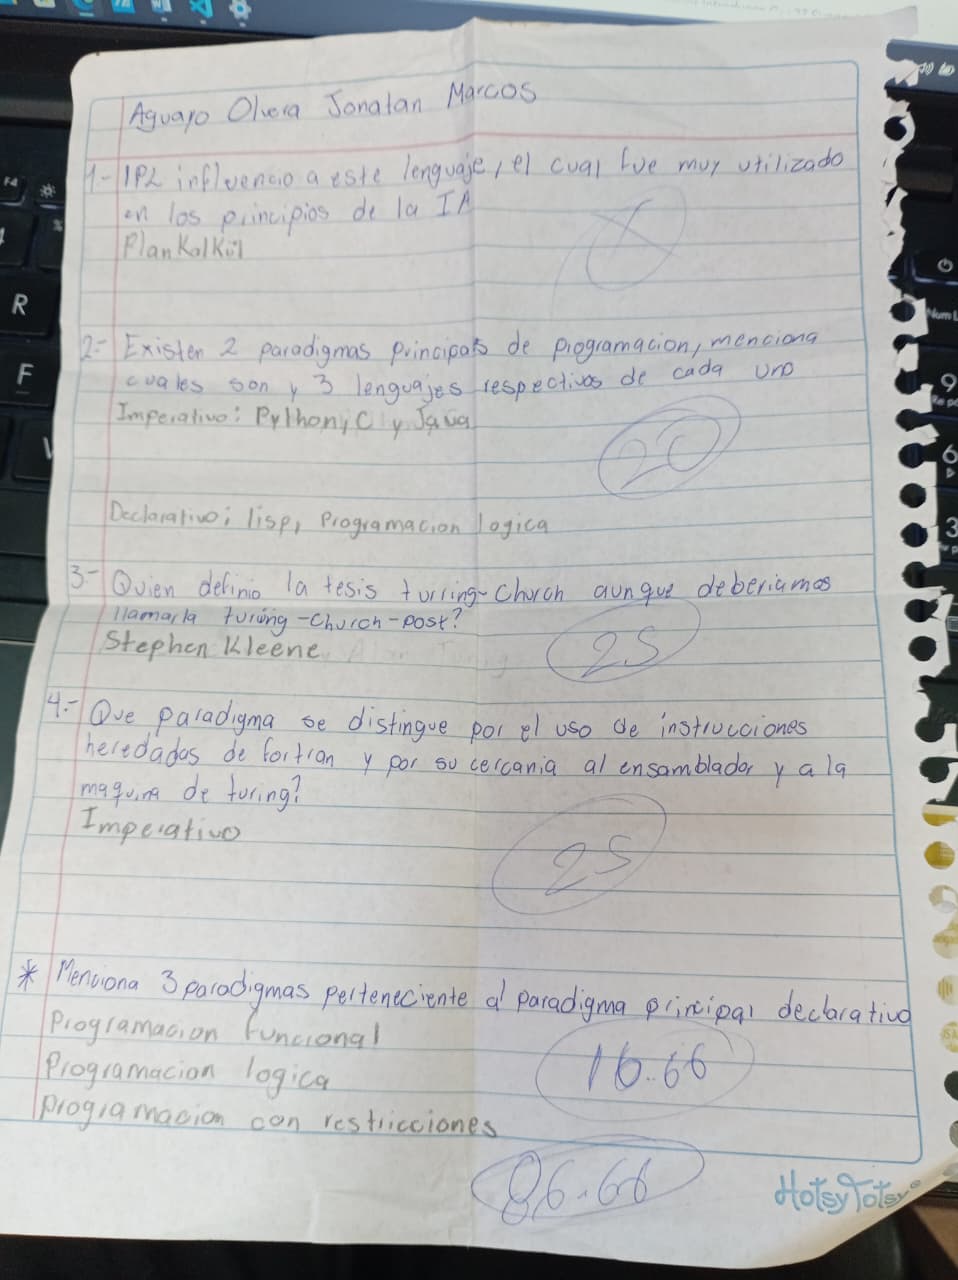 Aguayo Olvera Jonatan Marcos
1.- IPL influencio a este lenguaje, el cual fue muy utilizado
en los principios de la IA
Plankalkül
2.- Existen 2 paradigmas principals de programacion, menciona
cuales son y 3 lenguajes respectivos de cada uno
20
Imperativo: Python, C y Java
Declarativo; lisp, Programacion logica
3.- Quien definio la tesis turring-Church aunque deberiamos
llamarla turing-Church-post?
25
Stephen Kleene
4.- Que paradigma se distingue por el uso de instrucciones
heredadas de fortran y por su cercania al ensamblador y a la
maquina de turing?
25
Imperativo
* Menciona 3 paradigmas perteneciente al paradigma principal declarativo
Programacion funcional
16.66
Programacion logica
Programacion con restricciones
86.66
HotsyTotsy